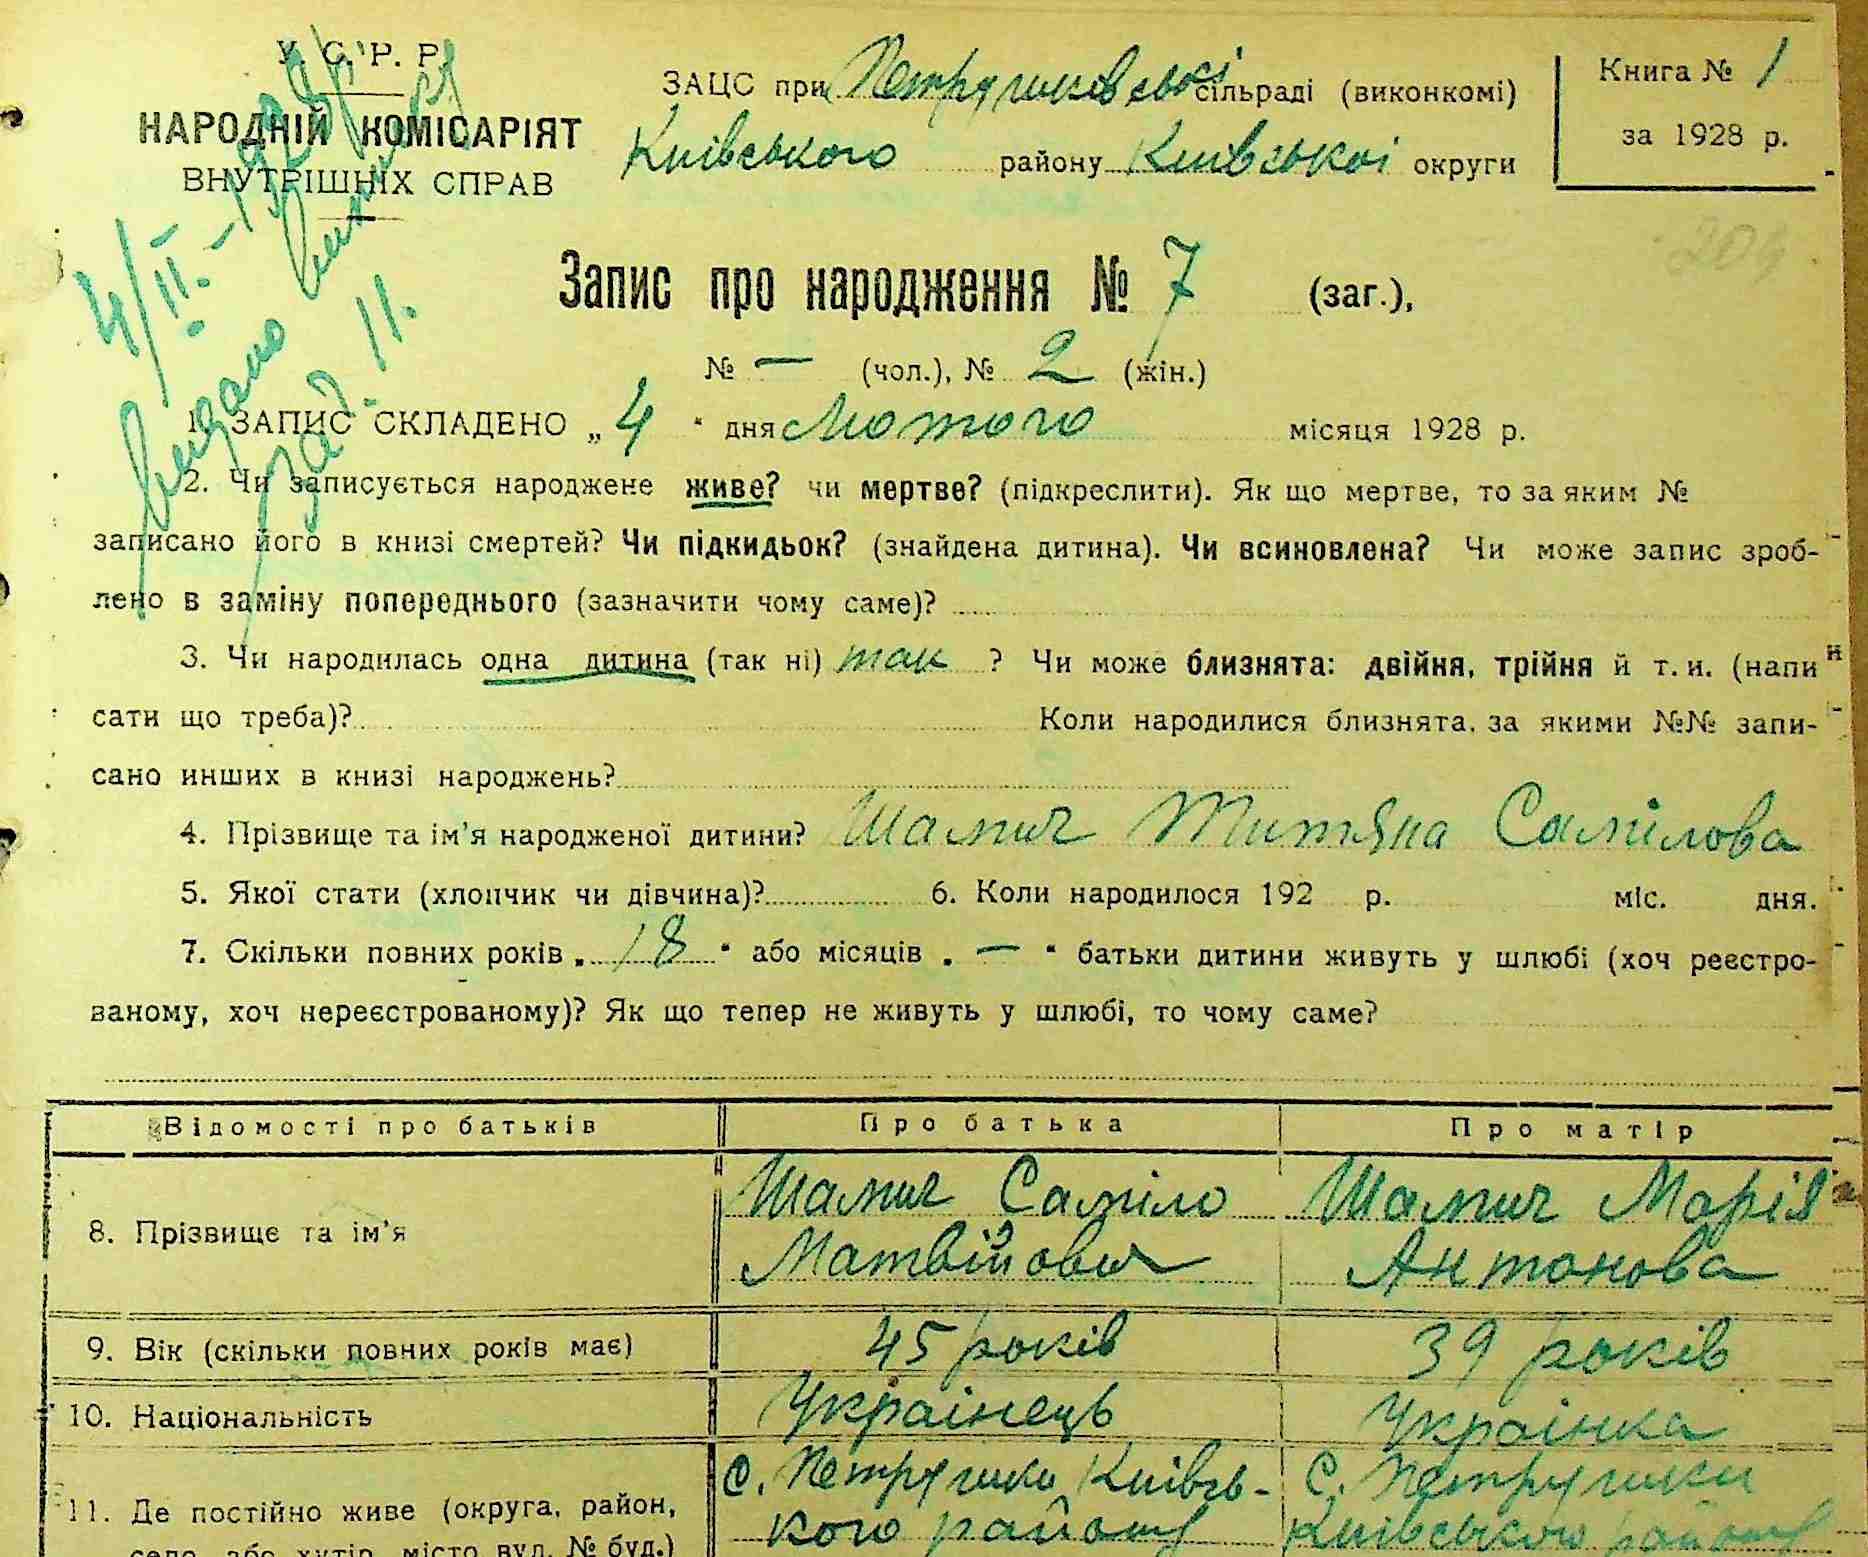 У. С. Р. Р.
НАРОДНІЙ КОМІСАРІЯТ
ВНУТРІШНІХ СПРАВ
ЗАЦС при Петрушківській сільраді (виконкомі)
Київського району Київської округи
Книга № 1
за 1928 р.
4/II.-1928 р. Видано витяг
за № 11.
209
Запис про народження № 7 (заг.),
№ — (чол.), № 2 (жін.)
1. ЗАПИС СКЛАДЕНО „4“ дня Лютого місяця 1928 р.
2. Чи записується народжене живе? чи мертве? (підкреслити). Як що мертве, то за яким №
записано його в книзі смертей? Чи підкидьок? (знайдена дитина). Чи всиновлена? Чи може запис зроб-
лено в заміну попереднього (зазначити чому саме)?
3. Чи народилась одна дитина (так ні) так ? Чи може близнята: двійня, трійня й т. и. (напи
сати що треба)? Коли народилися близнята, за якими №№ запи-
сано инших в книзі народжень?
4. Прізвище та ім'я народженої дитини? Шамич Титяна Самілова
5. Якої стати (хлопчик чи дівчина)? 6. Коли народилося 192 р. міс. дня.
7. Скільки повних років „18“ або місяців „—“ батьки дитини живуть у шлюбі (хоч реєстро-
ваному, хоч нереєстрованому)? Як що тепер не живуть у шлюбі, то чому саме?
Відомості про батьків Про батька Про матір
8. Прізвище та ім'я
Шамич Саміло
Матвійович
Шамич Марія
Антонова
9. Вік (скільки повних років має) 45 років 39 років
10. Національність Українець Українка
11. Де постійно живе (округа, район,
село, або хутір, місто вул. № буд.)
с. Петрушки Київсь-
кого району
с. Петрушки
Київського району